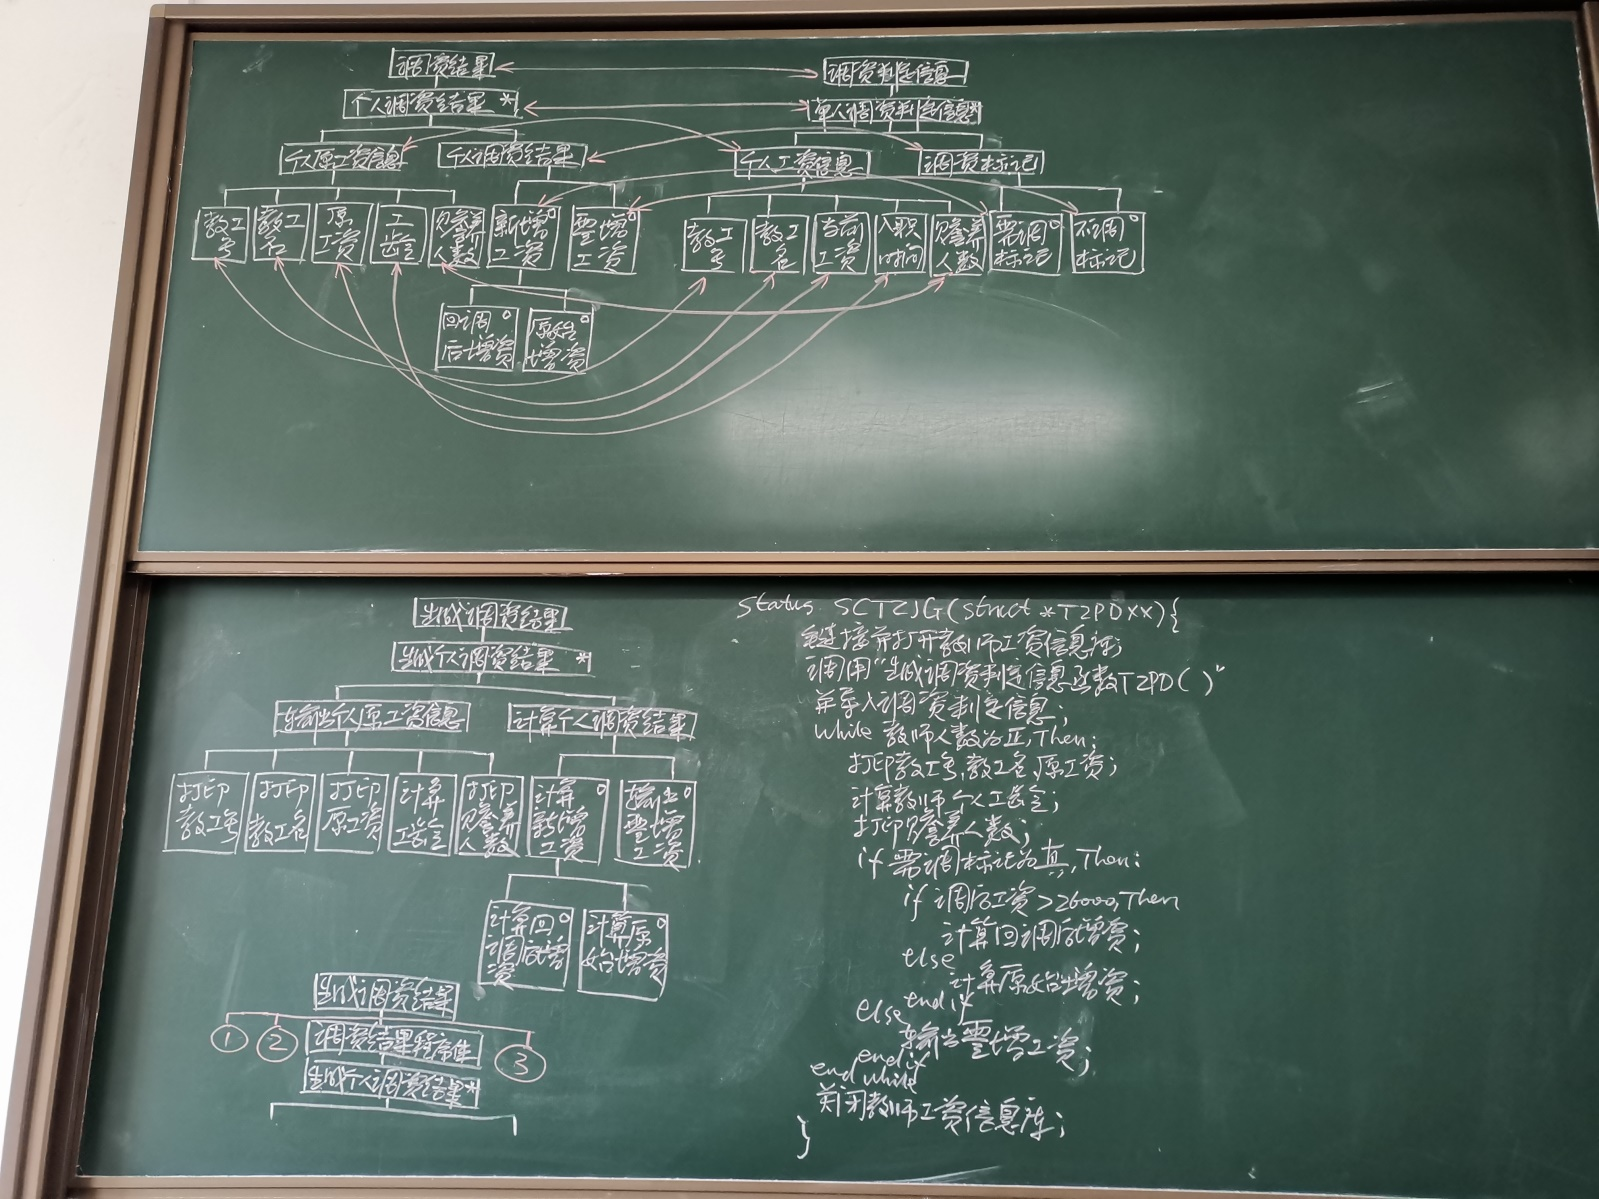 调资结果
调资判定信息
个人调资结果 *
单人调资判定信息*
个人原工资信息
个人调资结果
个人工资信息
调资标记
教工号
教工名
原工资
工龄
赡养人数
新增工资 o
零增工资 o
教工号
教工名
当前工资
入职时间
赡养人数
需调标记 o
不调标记 o
回调后增资 o
原始增资 o
生成调资结果
生成个人调资结果 *
输出个人原工资信息
计算个人调资结果
打印教工号
打印教工名
打印原工资
计算工龄
打印赡养人数
计算新增工资 o
输出零增工资 o
计算回调后增资 o
计算原始增资 o
生成调资结果
1
2
调资结果程序体
3
生成个人调资结果*
Status SCTZJG(struct *TZPDXX){
连接并打开教师工资信息库;
调用“生成调资判定信息函数TZPD()”
并导入调资判定信息;
While 教师人数为正,Then;
打印教工号,教工名,原工资;
计算教师个人工龄;
打印赡养人数;
if 需调标记为真,Then:
if 调后工资>26000,Then
计算回调后增资;
else
计算原始增资;
end if
else
输出零增工资;
end if
end while
关闭教师工资信息库;
}